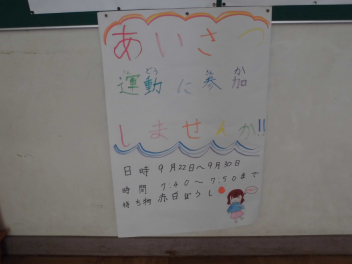 あいさつ
運動に参加
しませんか!!
日時 9月22日~9月30日
時間 7:40~7:50まで
持ち物 赤白ぼうし